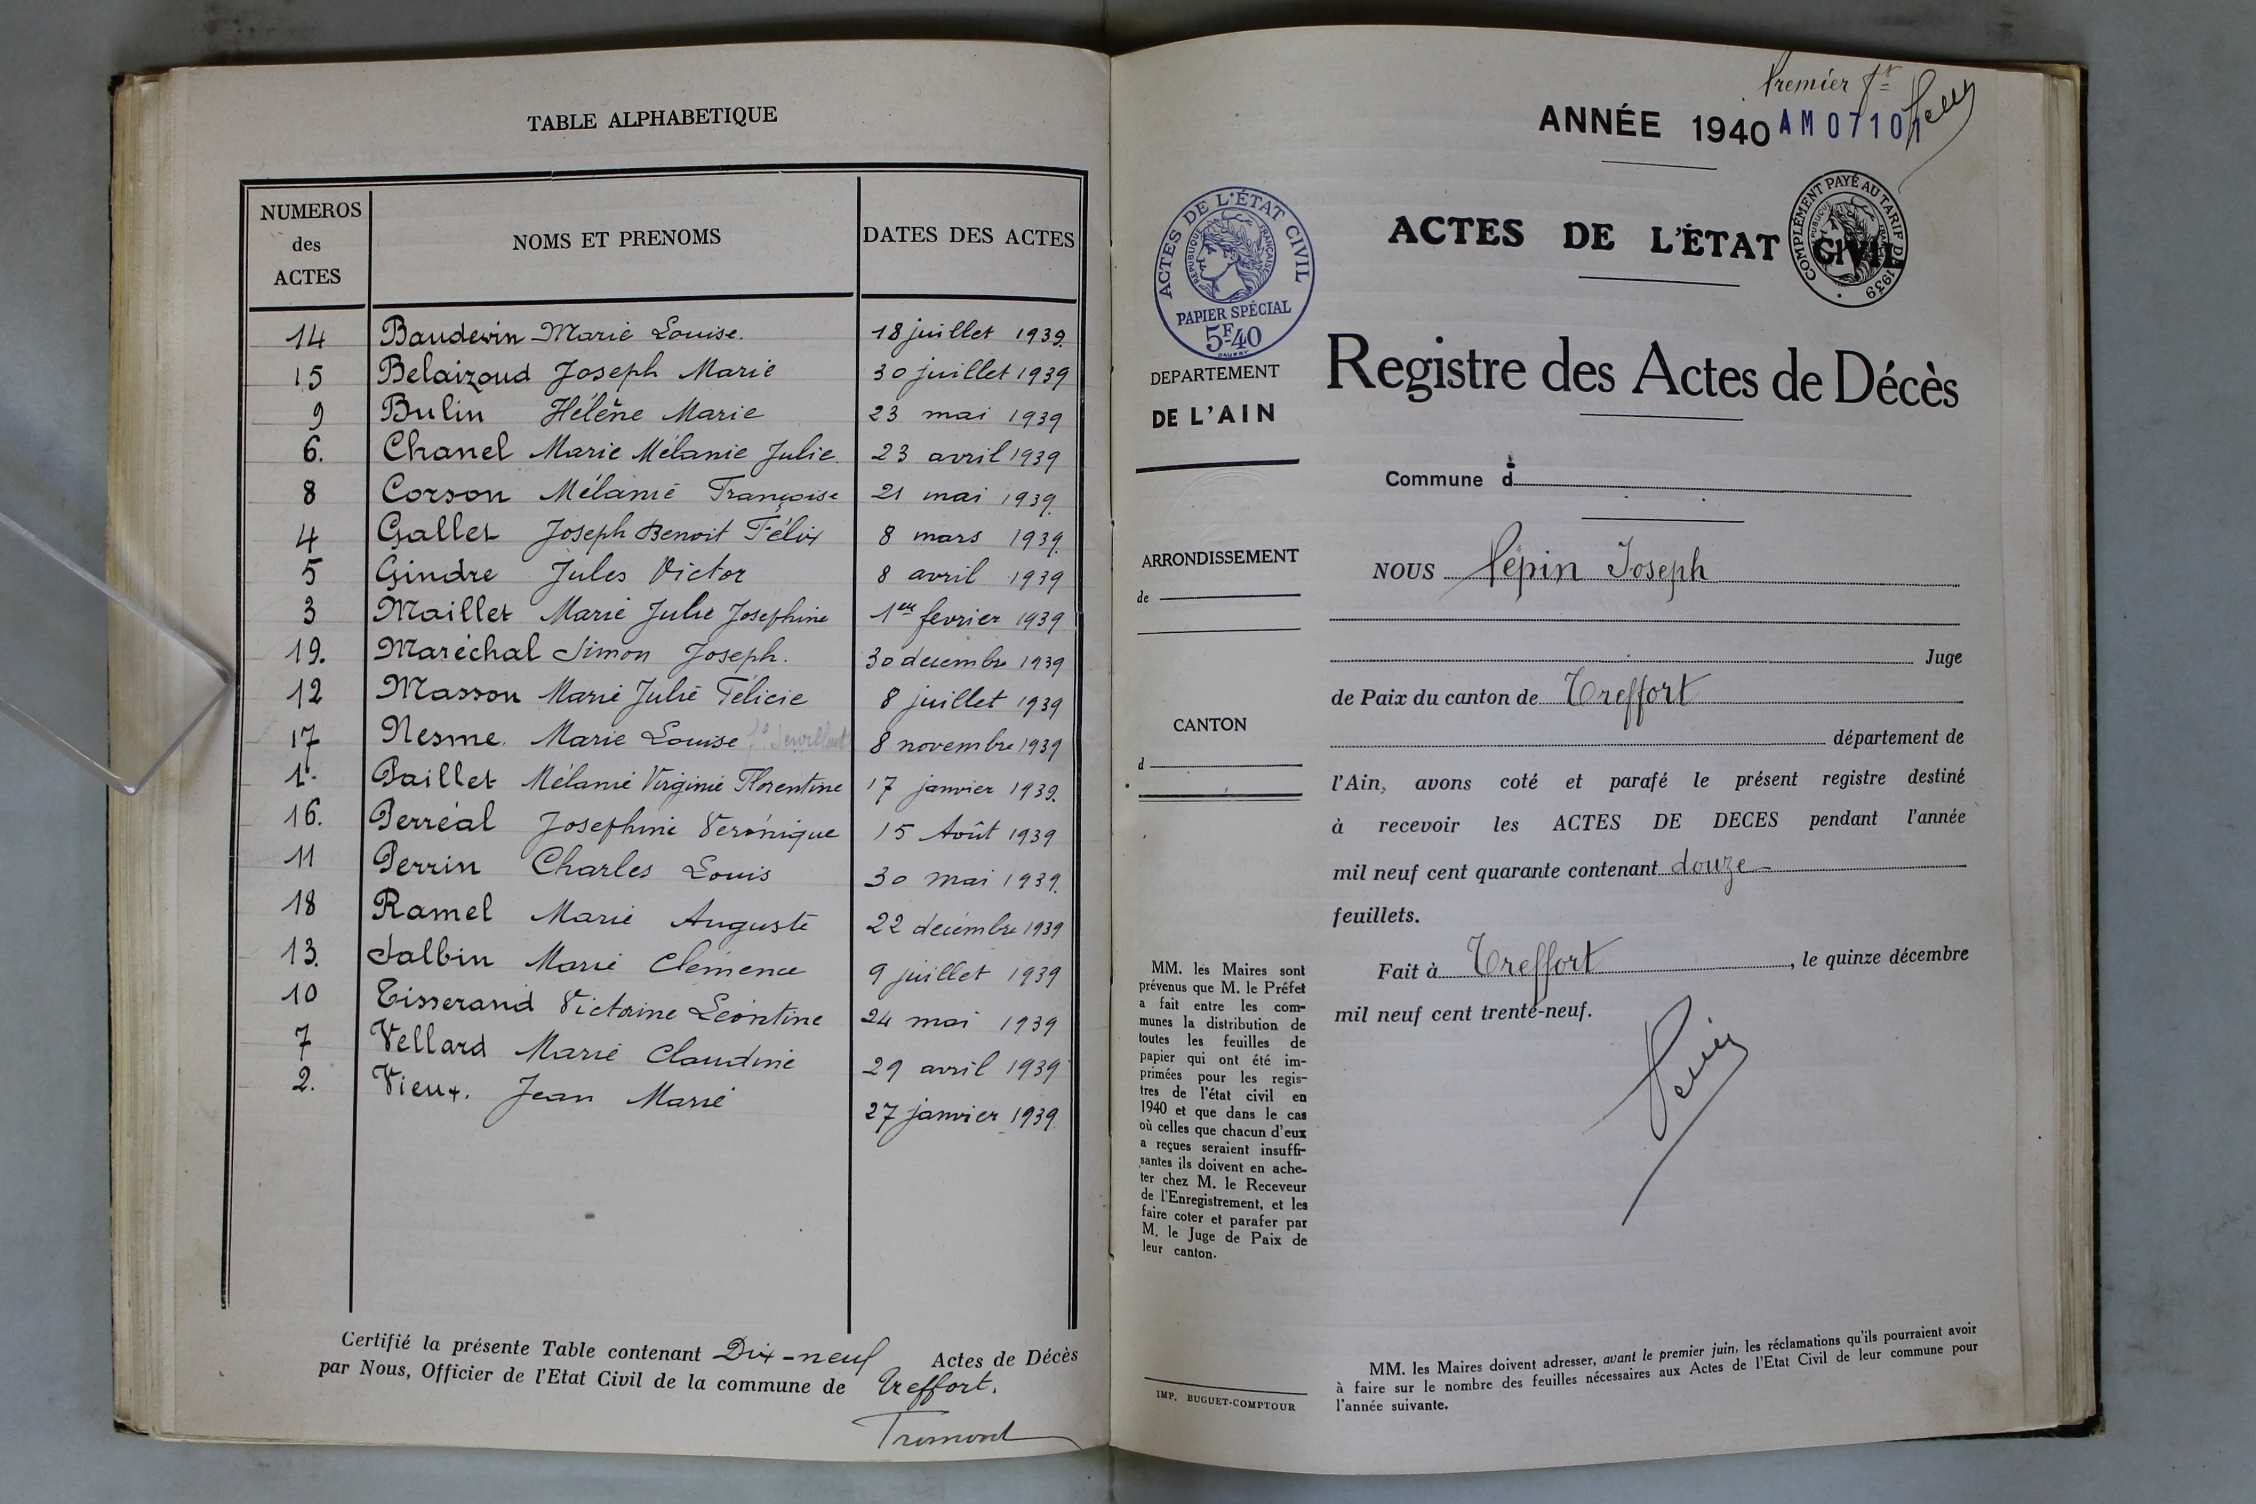 TABLE ALPHABETIQUE
NUMEROS des ACTES NOMS ET PRENOMS DATES DES ACTES
14 Baudevin Marie Louise. 18 juillet 1939.
15 Belaizoud Joseph Marie 30 juillet 1939
9 Bulin Hélène Marie 23 mai 1939
6. Chanel Marie Mélanie Julie. 23 avril 1939
8 Corson Mélanie Françoise 21 mai 1939.
4 Gallet Joseph Benoit Félix 8 mars 1939.
5 Gindre Jules Victor 8 avril 1939
3 Maillet Marie Julie Josephine 1er fevrier 1939
19. Maréchal Simon Joseph. 30 decembre 1939
12 Masson Marie Julie Félicie 8 juillet 1939
17 Nesme. Marie Louise 8 novembre 1939
1. Paillet Mélanie Virginie Florentine 17 janvier 1939.
16. Perréal Josephine Veronique 15 Août 1939
11 Perrin Charles Louis 30 mai 1939.
18 Ramel Marie Auguste 22 decembre 1939
13. Salbin Marie Clémence 9 juillet 1939
10 Tisserand Victorine Léontine 24 mai 1939
7 Vellard Marie Claudine 29 avril 1939
2. Vieux. Jean Marie 27 janvier 1939.
Certifié la présente Table contenant Dix-neuf Actes de Décès
par Nous, Officier de l'Etat Civil de la commune de Treffort.
Premier ft
ANNÉE 1940 AM07101
ACTES DE L'ÉTAT CIVIL
COMPLÉMENT PAYÉ AU TARIF DE 1939
ACTES DE L'ÉTAT CIVIL
RÉPUBLIQUE FRANÇAISE
PAPIER SPÉCIAL
5F40
Registre des Actes de Décès
DEPARTEMENT
DE L'AIN
Commune d
ARRONDISSEMENT
de
NOUS Pépin Joseph
Juge
de Paix du canton de Treffort
CANTON
d
département de
l'Ain, avons coté et parafé le présent registre destiné
à recevoir les ACTES DE DECES pendant l'année
mil neuf cent quarante contenant douze
feuillets.
Fait à Treffort, le quinze décembre
mil neuf cent trente-neuf.
MM. les Maires sont
prévenus que M. le Préfet
a fait entre les com-
munes la distribution de
toutes les feuilles de
papier qui ont été im-
primées pour les regis-
tres de l'état civil en
1940 et que dans le cas
où celles que chacun d'eux
a reçues seraient insuffi-
santes ils doivent en ache-
ter chez M. le Receveur
de l'Enregistrement, et les
faire coter et parafer par
M. le Juge de Paix de
leur canton.
IMP. BUGUET-COMPTOUR
MM. les Maires doivent adresser, avant le premier juin, les réclamations qu'ils pourraient avoir
à faire sur le nombre des feuilles nécessaires aux Actes de l'Etat Civil de leur commune pour
l'année suivante.